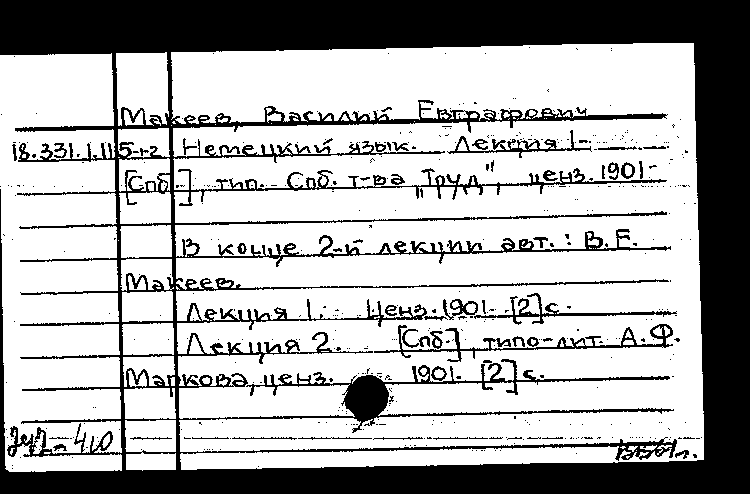 Макеев, Василий Евграфович
18.331.1.115 1-2 Немецкий язык. Лекция 1-
[Спб.], тип. Спб. т-ва „Труд", ценз. 1901-
В конце 2-й лекции авт.: В. Е.
Макеев.
Лекция 1. Ценз. 1901. [2] с.
Лекция 2. [Спб.], типо-лит. А. Ф.
Маркова, ценз. 1901. [2] с.